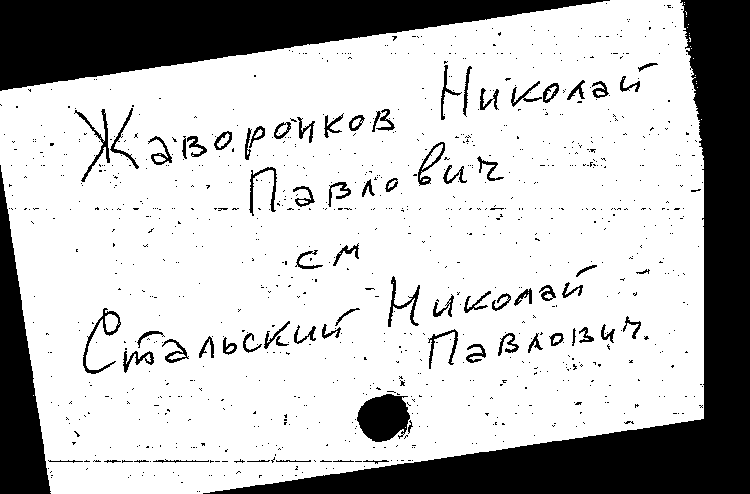 Жаворонков Николай
Павлович
см
Стальский Николай
Павлович.